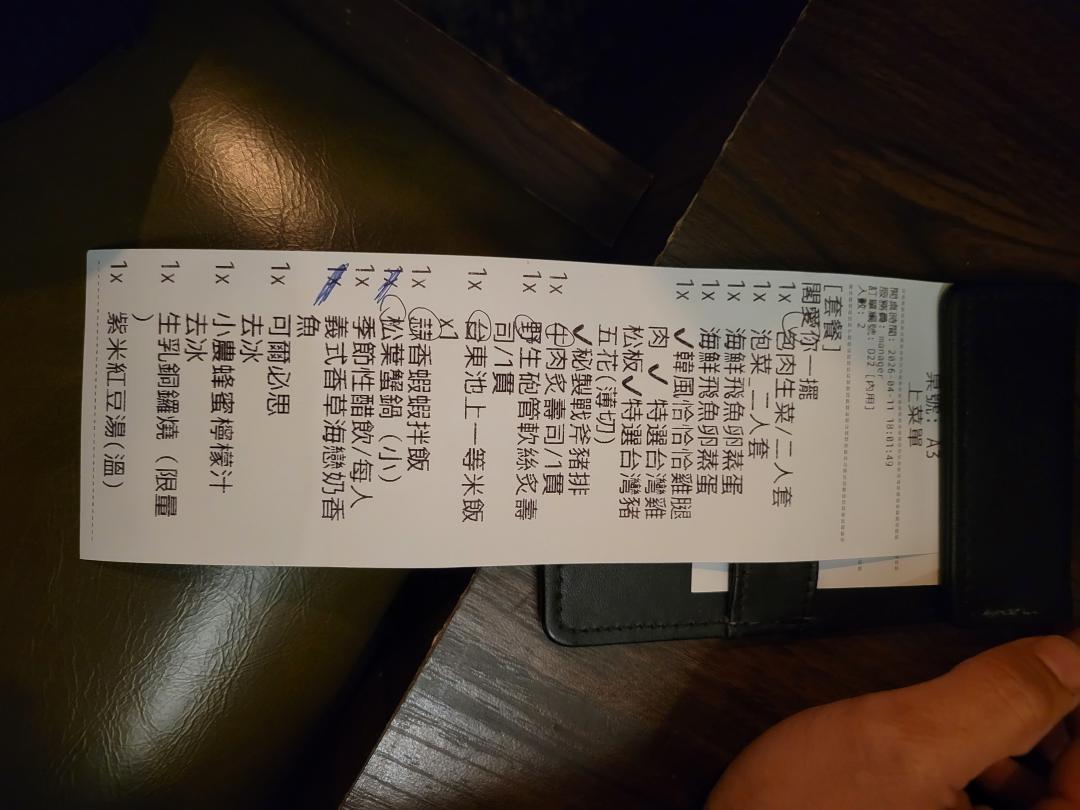 桌號: A3
上菜單
開桌時間: 2026-04-11 18:01:49
服務員: manager
訂單編號: 022 [內用]
人數: 2
[套餐]
闔愛你一擺
1x 包肉生菜/二人套
1x 泡菜_二人套
1x 海鮮飛魚卵蒸蛋
1x 海鮮飛魚卵蒸蛋
1x ✓韓風恰恰恰雞腿
肉 ✓ 特選台灣雞
松板 ✓特選台灣豬
五花(薄切)
✓秘製戰斧豬排
1x 牛肉炙壽司/1貫
1x 野生砲管軟絲炙壽
司/1貫
1x 台東池上一等米飯
x1
1x 蒜香蝦蝦蝦拌飯
1x 松葉蟹鍋（小）
1x 季節性醋飲/每人
1x 義式香草海戀奶香
魚
1x 可爾必思
去冰
1x 小農蜂蜜檸檬汁
去冰
1x 生乳銅鑼燒（限量
）
1x 紫米紅豆湯(溫)